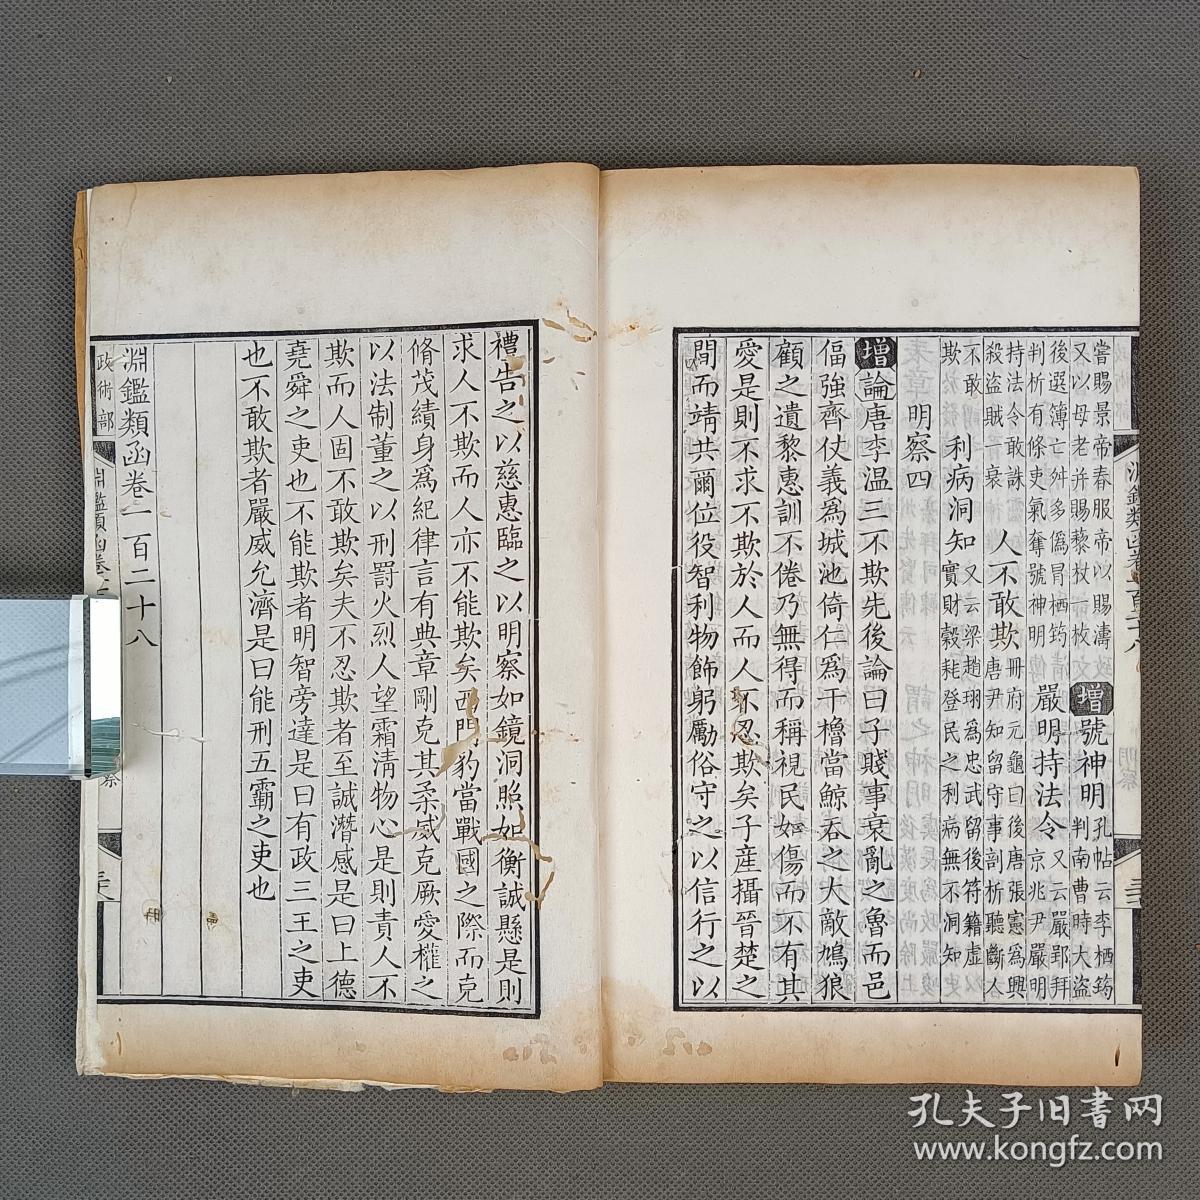 嘗賜景帝春服帝以賜濤致
又以母老并賜藜杖一枚文
增號神明孔帖云李栖筠
判南曹時大盜
後選簿亡舛多僞冒栖筠
判析有條吏氣奪號神明
嚴明持法令又云嚴郢拜
京兆尹嚴明
持法令敢誅
殺盜賊一衰
人不敢欺冊府元龜曰後唐張憲爲興
唐尹知留守事剖析聽斷人
不敢
欺
利病洞知又云梁趙珝爲忠武留後符籍虛
實財穀耗登民之利病無不洞知
明察四
增論唐李溫三不欺先後論曰子賤事衰亂之魯而邑
偪強齊仗義爲城池倚仁爲干櫓當鯨吞之大敵鴆狼
顧之遺黎惠訓不倦乃無得而稱視民如傷而不有其
愛是則不求不欺於人而人不忍欺矣子產攝晉楚之
間而靖共爾位役智利物飾躬勵俗守之以信行之以
禮告之以慈惠臨之以明察如鏡洞照如衡誠懸是則
求人不欺而人亦不能欺矣西門豹當戰國之際而克
脩茂績身爲紀律言有典章剛克其柔威克厥愛權之
以法制董之以刑罰火烈人望霜淸物心是則責人不
欺而人固不敢欺矣夫不忍欺者至誠潛感是曰上德
堯舜之吏也不能欺者明智旁達是曰有政三王之吏
也不敢欺者嚴威允濟是曰能刑五霸之吏也
淵鑑類函卷一百二十八
政術部
淵鑑類函卷
孔夫子旧书网
www.kongfz.com